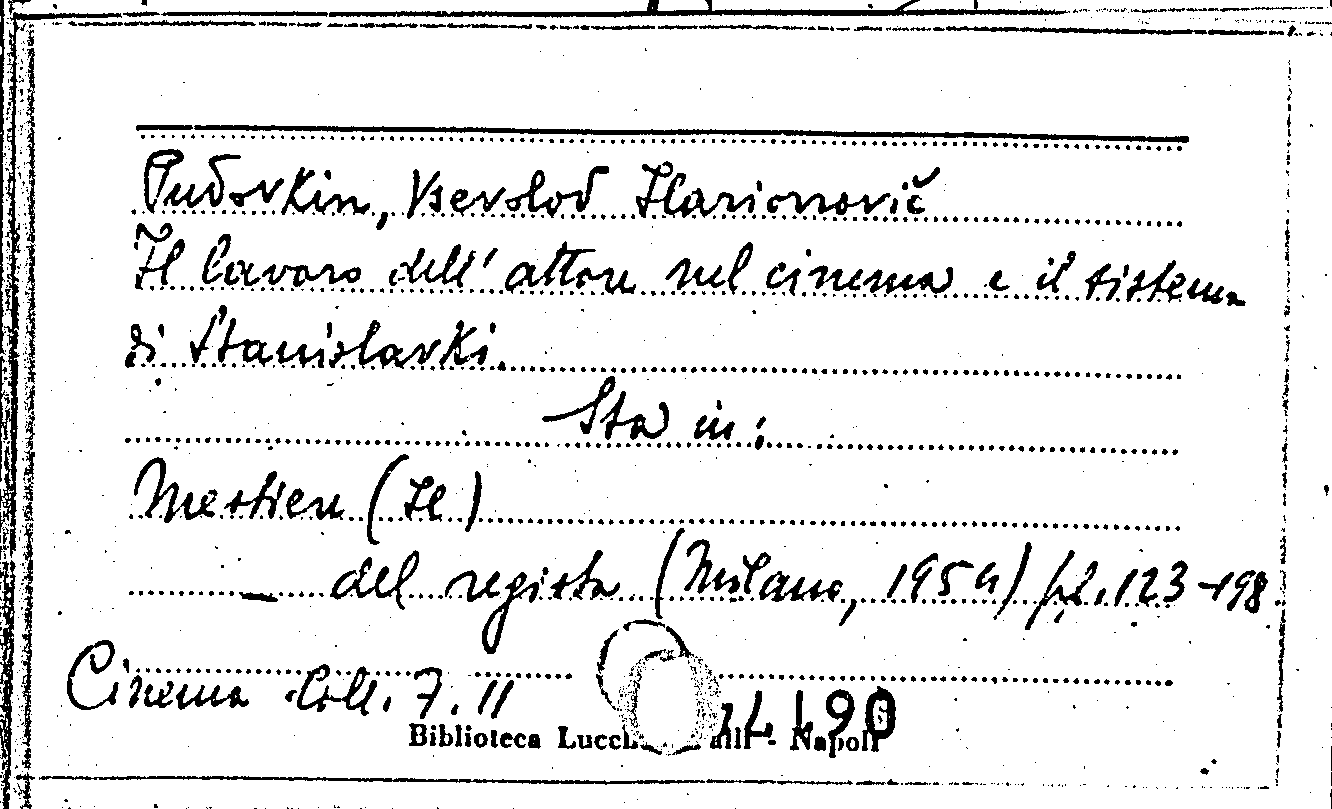 Pudovkin, Vsevolod Ilarionovič
Il lavoro dell'attore nel cinema e il sistema
di Stanislavki.
Sta in:
Mestiere (Il)
— del regista (Milano, 1954) pp. 123-198.
Cinema Coll. 7. 11
Biblioteca - Napoli